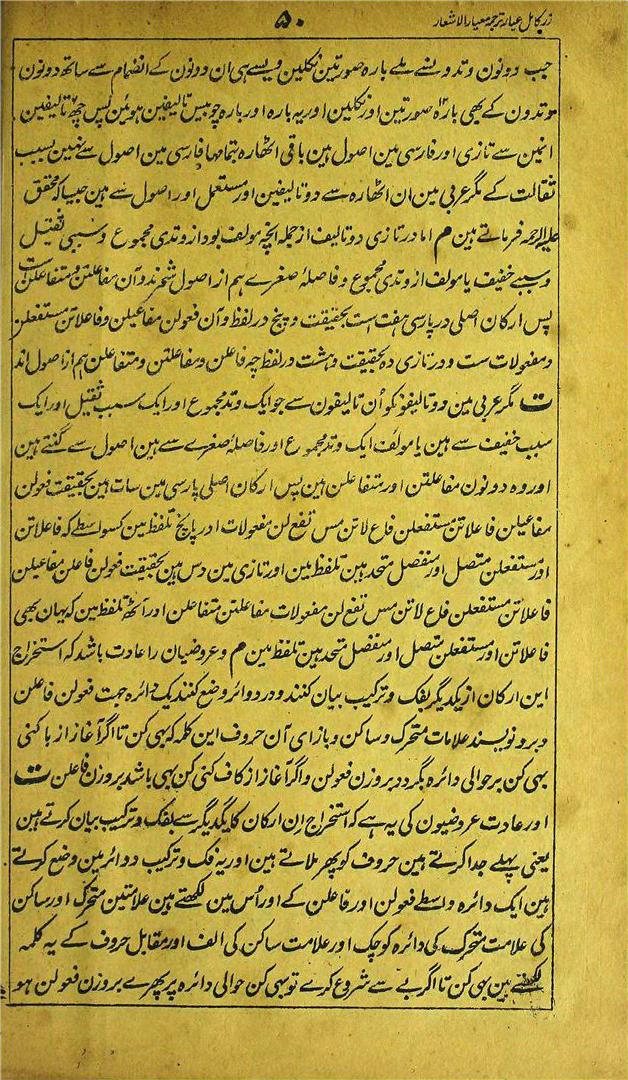 زر کامل عیار ترجمہ معیار الاشعار ۵۰
جب دونون وتدونسے ملے بارہ صورتین نکلین ویسے ہی ان دونون کے انضمام سے ساتھ دونون
وتدون کے بھی بارہ صورتین اور نکلین اور یہ بارہ اور بارہ چوبیس تالیفین ہوئین پس چھ تالیفین
انین سے تازی اور فارسی مین اصول ہین باقی اٹھارہ بتمامہا فارسی مین اصول سے نہین بسبب
ثقالت کے مگر عربی مین ان اٹھارہ سے دو تالیفین اور مستعمل اور اصول سے ہین جیسا کہ محقق
علیہ الرحمہ فرماتے ہین م اما در تازی دو تالیف از جملہ انچہ مولف بود از وتدی مجموع و سببی ثقیل
و سببے خفیف یا مولف از وتدی مجموع و فاصلۂ صغرے ہم از اصول شمرند و آن مفاعلتن و متفاعلن است
پس ارکان اصلی در پارسی ہفت است بحقیقت و پنج در لفظ و آن فعولن مفاعیلن و فاعلاتن مستفعلن
و مفعولات ست و در تازی دہ بحقیقت و ہشت در لفظ چہ فاعلن و مفاعلتن و متفاعلن ہم از اصول اند
ت مگر عربی مین دو تالیفونکو اُن تالیفون سے جو ایک وتد مجموع اور ایک سبب ثقیل اور ایک
سبب خفیف سے ہین یا مولف ایک وتد مجموع اور فاصلۂ صغرے سے ہین اصول سے گنتے ہین
اور وہ دونون مفاعلتن اور متفاعلن ہین پس ارکان اصلی پارسی مین سات ہین بحقیقت فعولن
مفاعیلن فاعلاتن مستفعلن فاع لاتن مس تفع لن مفعولات اور پانچ تلفظ مین کسواسطے کہ فاعلاتن
اور مستفعلن متصل اور منفصل متحد ہین تلفظ مین اور تازی مین دس ہین بحقیقت فعولن فاعلن مفاعیلن
فاعلاتن مستفعلن فاع لاتن مس تفع لن مفعولات مفاعلتن متفاعلن اور آٹھ تلفظ مین کہ یہان بھی
فاعلاتن اور مستفعلن متصل اور منفصل متحد ہین تلفظ مین م و عروضیان را عادت باشد کہ استخراج
این ارکان از یکدیگر بفک و ترکیب بیان کنند و در دوائر وضع کنند یک دائرہ جہت فعولن فاعلن
و برو نویسند علامات متحرک و ساکن و بازاے آن حروف این کلمہ کہ بہی کن تا اگر آغاز از با کنی
بہی کن بر حوالی دائرہ بگردد بر وزن فعولن و اگر آغاز از کاف کنی کن بہی باشد بر وزن فاعلن ت
اور عادت عروضیون کی یہ ہے کہ استخراج اِن ارکان کا یکدیگر سے بفک و ترکیب بیان کرتے ہین
یعنی پہلے جدا کرتے ہین حروف کو پھر ملاتے ہین اور یہ فک و ترکیب دوائر مین وضع کرتے
ہین ایک دائرہ واسطے فعولن اور فاعلن کے اور اُس مین لکھتے ہین علامتین متحرک اور ساکن
کی علامت متحرک کی دائرہ کوچک اور علامت ساکن کی الف اور مقابل حروف کے یہ کلمہ
لکھتے ہین بہی کن تا اگر بے سے شروع کرے تو بہی کن حوالی دائرہ پر پھرے بر وزن فعولن ہو